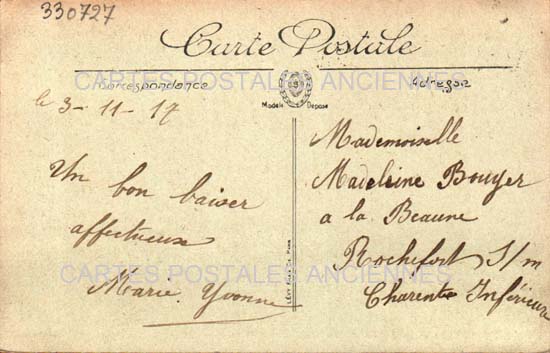 330727
Carte Postale
CARTES POSTALES ANCIENNES
Correspondance
Adresse
Modèle Déposé
le 3-11-17
Un bon baiser
affectueux
Marie Yvonne
LÉVY FILS & Cie PARIS
Mademoiselle
Madeleine Bouyer
a la Beaune
Rochefort S/m
Charente Inférieure
CARTES POSTALES ANCIENNES